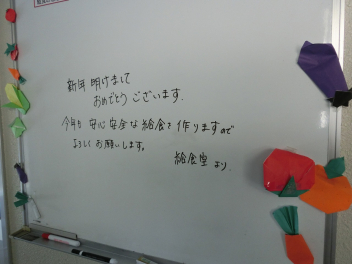 新年 明けまして
おめでとう ございます.
今年も 安心 安全 な 給食を 作りますので
よろしく お願いします。
給食室 より.